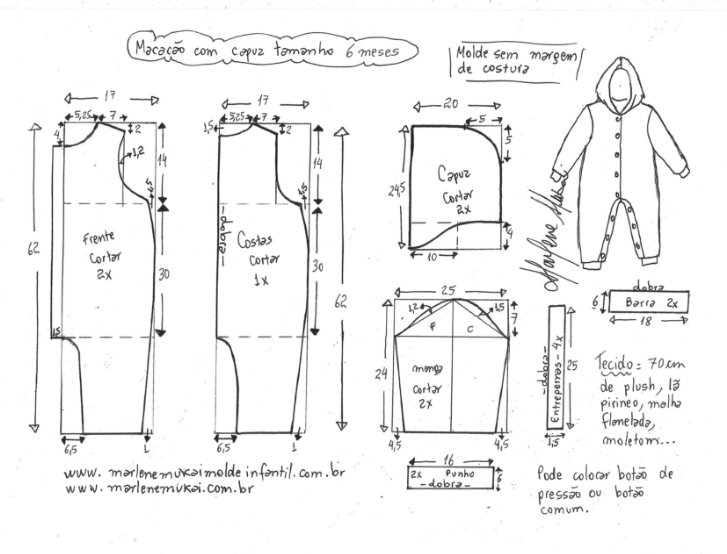 Macacão com capuz tamanho 6 meses
Molde sem margem
de costura
17
5,25
7
4
2
1,2
14
1,5
62
Frente
Cortar
2x
30
1,5
6,5
1
17
5,25
7
1,5
2
14
1,5
-dobra-
Costas
Cortar
1x
30
62
6,5
1
20
5
5
Capuz
Cortar
2x
24,5
4
10
Marlene Mukai
25
1,2
1,5
7
F
C
24
manga
cortar
2x
4,5
4,5
16
2x Punho
-dobra-
6
-dobra-
Entrepernas - 4x
25
1,5
dobra
6
Barra 2x
18
Tecido = 70cm
de plush, lã
pirineo, malha
flanelada,
moletom...
Pode colocar botão de
pressão ou botão
comum.
www.marlenemukaimoldeinfantil.com.br
www.marlenemukai.com.br